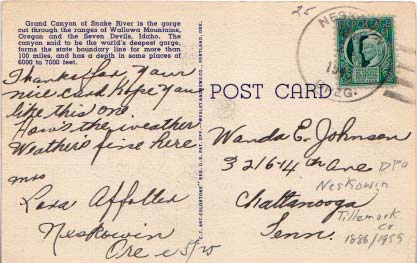 Grand Canyon of Snake River is the gorge
cut through the ranges of Wallowa Mountains,
Oregon and the Seven Devils, Idaho. The
canyon said to be the world's deepest gorge,
forms the state boundary line for more than
100 miles, and has a depth in some places of
6000 to 7000 feet.
Thanks for your
nice card hope you
like this one
Hows the weather
Weathers fine here
Mrs
Lora Affolter
Neskowin
Ore
5/20
25
NESKOWIN
OREG.
POST CARD
Wanda E. Johnson
3216-14 th Ave
Chattanooga
Tenn.
DPO
Neskowin
Tillamook
Co
1886/1959